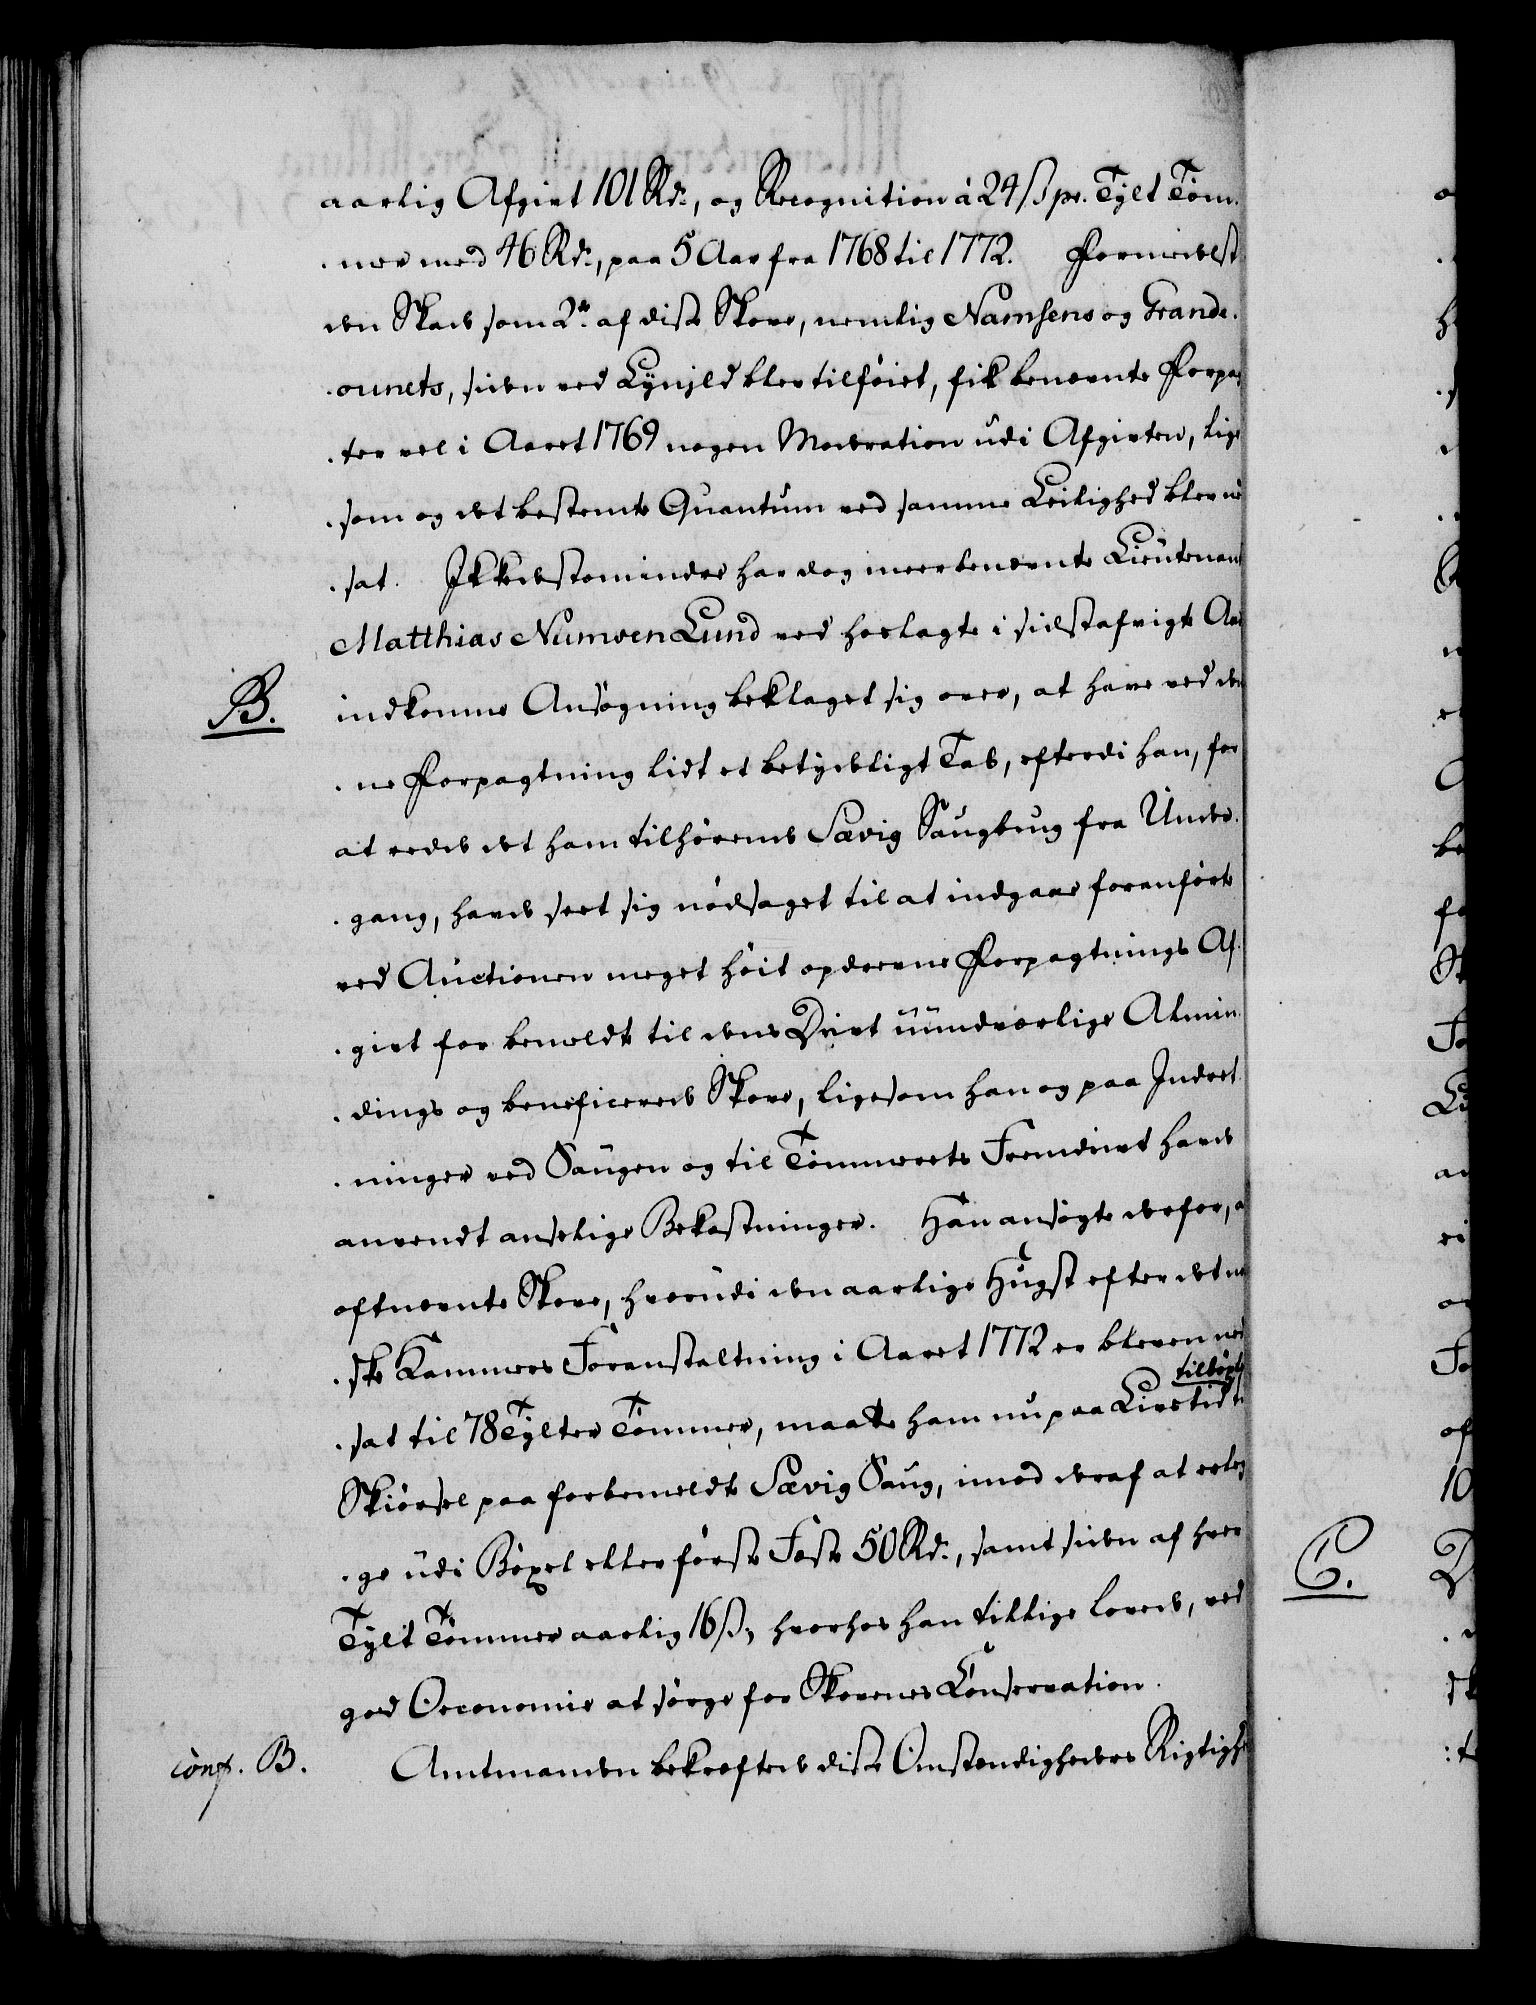 aarlig Afgivt 101 Rd:, og Recognition à 24 ß pr. Tylt Tøm¬
mer med 46 Rd:, paa 5 Aar fra 1768 til 1772. Formedelst
den Skade som 2de af disse Skove, nemlig Namsens og Grande¬
ounets, siden ved Lynjld blev tilføiet, fik benævnte Forpag
ter vel i Aaret 1769 nogen Moderation udi Afgivten, lige
som og det bestemte Quantum ved samme Leilighed blev ned
sat. Ikkedestomindre har dog meerbenævnte Lieutenant
Matthias Numsen Lund ved hoslagte i sidstafvigte Aar
B.
indkomne Ansøgning beklaget sig over, at have ved den
ne Forpagtning lidt et betydeligt Tab, efterdi han, for
at redde det ham tilhørende Sævig Saugbrug fra Under¬
gang, havde seet sig nødsaget til at indgaae foranførte
ved Auctionen meget høit opdrevne Forpagtnings Af¬
givt for bemeldte til dens Drivt uundværlige Almin¬
dings og beneficerede Skove, ligesom han og paa Indret¬
ninger ved Saugen og til Tømmerets Fremdrivt havde
anvendt anselige Bekostninger. Han ansøgte derfor, a
oftnævnte Skove, hvorudi den aarlige Hugst efter det no
ske Kammers Foranstaltning i Aaret 1772 er bleven ned
tilbøxle
sat til 78 Tylter Tømmer, maatte ham nu paa Livstid ti
Skiørsel paa forbemeldte Sævig Saug, imod deraf at erleg
ge udi Bøxel eller første Fæste 50 Rd:, samt siden af hver
Tylt Tømmer aarlig 16 ß, hvorhos han tillige lovede, ved
god Oeconomie at sørge for Skovenes Conservation.
conf. B.
Amtmanden bekræftede disse Omstændigheders Rigtighe
C.